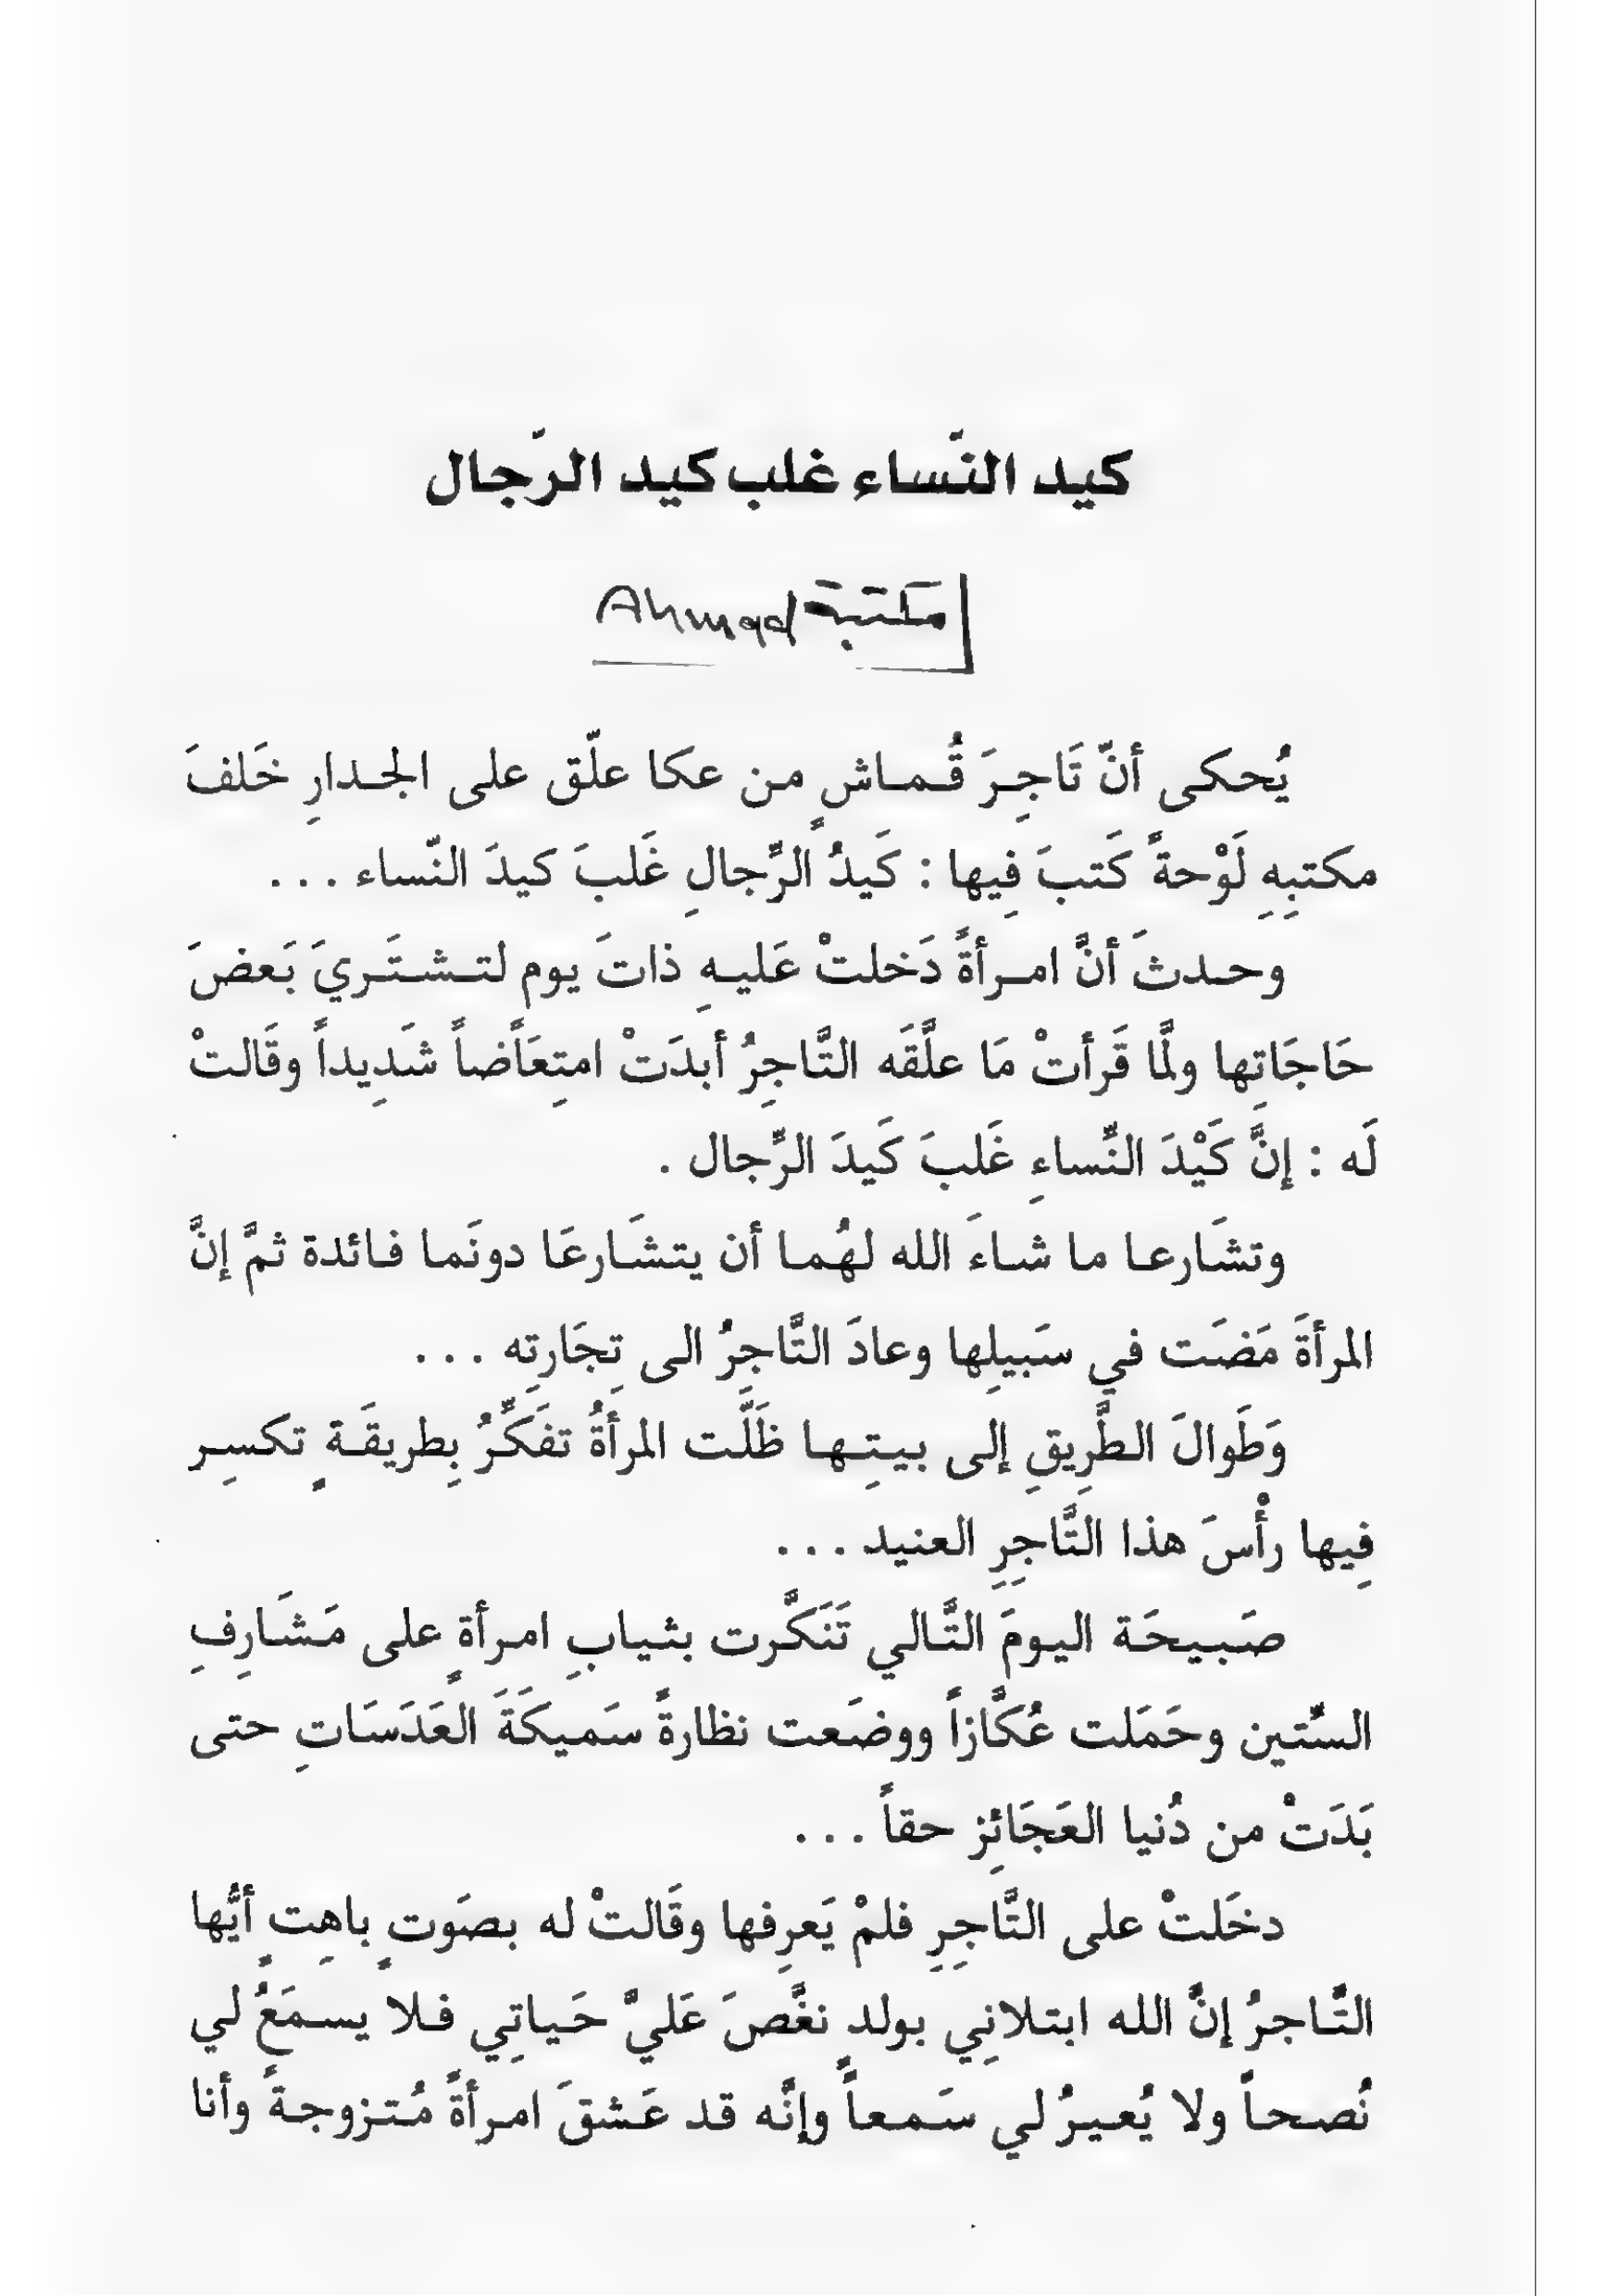 كيد النّساء غلب كيد الرّجال
مكتبة Ahmad
يُحكى أنّ تَاجِرَ قُماشٍ من عكا علّق على الجدارِ خَلفَ
مكتبِهِ لَوْحةً كَتبَ فِيها : كَيدُ الرِّجالِ غَلبَ كيدَ النّساء . . .
وحدثَ أنَّ امرأةً دَخلتْ عَليهِ ذاتَ يوم لتشتَريَ بَعضَ
حَاجَاتِها ولمَّا قَرأتْ مَا علَّقَه التَّاجِرُ أبدَتْ امتِعَاضاً شَدِيداً وقَالتْ
لَه : إنَّ كَيْدَ النِّساءِ غَلبَ كَيدَ الرِّجال .
وتشَارعا ما شاءَ الله لهُما أن يتشَارعَا دونَما فائدة ثمَّ إنَّ
المرأةَ مَضَت في سَبيلِها وعادَ التَّاجرُ الى تِجَارتِه . . .
وَطَوالَ الطَّرِيقِ إلى بيتِها ظَلَّت المرأَةُ تفَكِّرُ بِطريقَةٍ تكسِر
فِيها رأْسَ هذا التَّاجِرِ العنيد . . .
صَبيحَة اليومَ التَّالي تَنَكَّرت بثيابِ امرأةٍ على مَشَارِفِ
السِّتين وحَمَلت عُكَّازاً ووضَعت نظارةً سَميكَةَ العَدَسَاتِ حتى
بَدَتْ من دُنيا العَجَائِز حقاً . . .
دخَلتْ على التَّاجِرِ فلمْ يَعرِفها وقَالتْ له بصَوتٍ باهِتٍ أيُّها
التَّاجرُ إنَّ الله ابتلانِي بولدٍ نغَّصَ عَليَّ حَياتِي فلا يسمَعُ لي
نُصحاً ولا يُعيرُ لي سَمعاً وإنَّه قد عَشقَ امرأةً مُتزوجةً وأنا